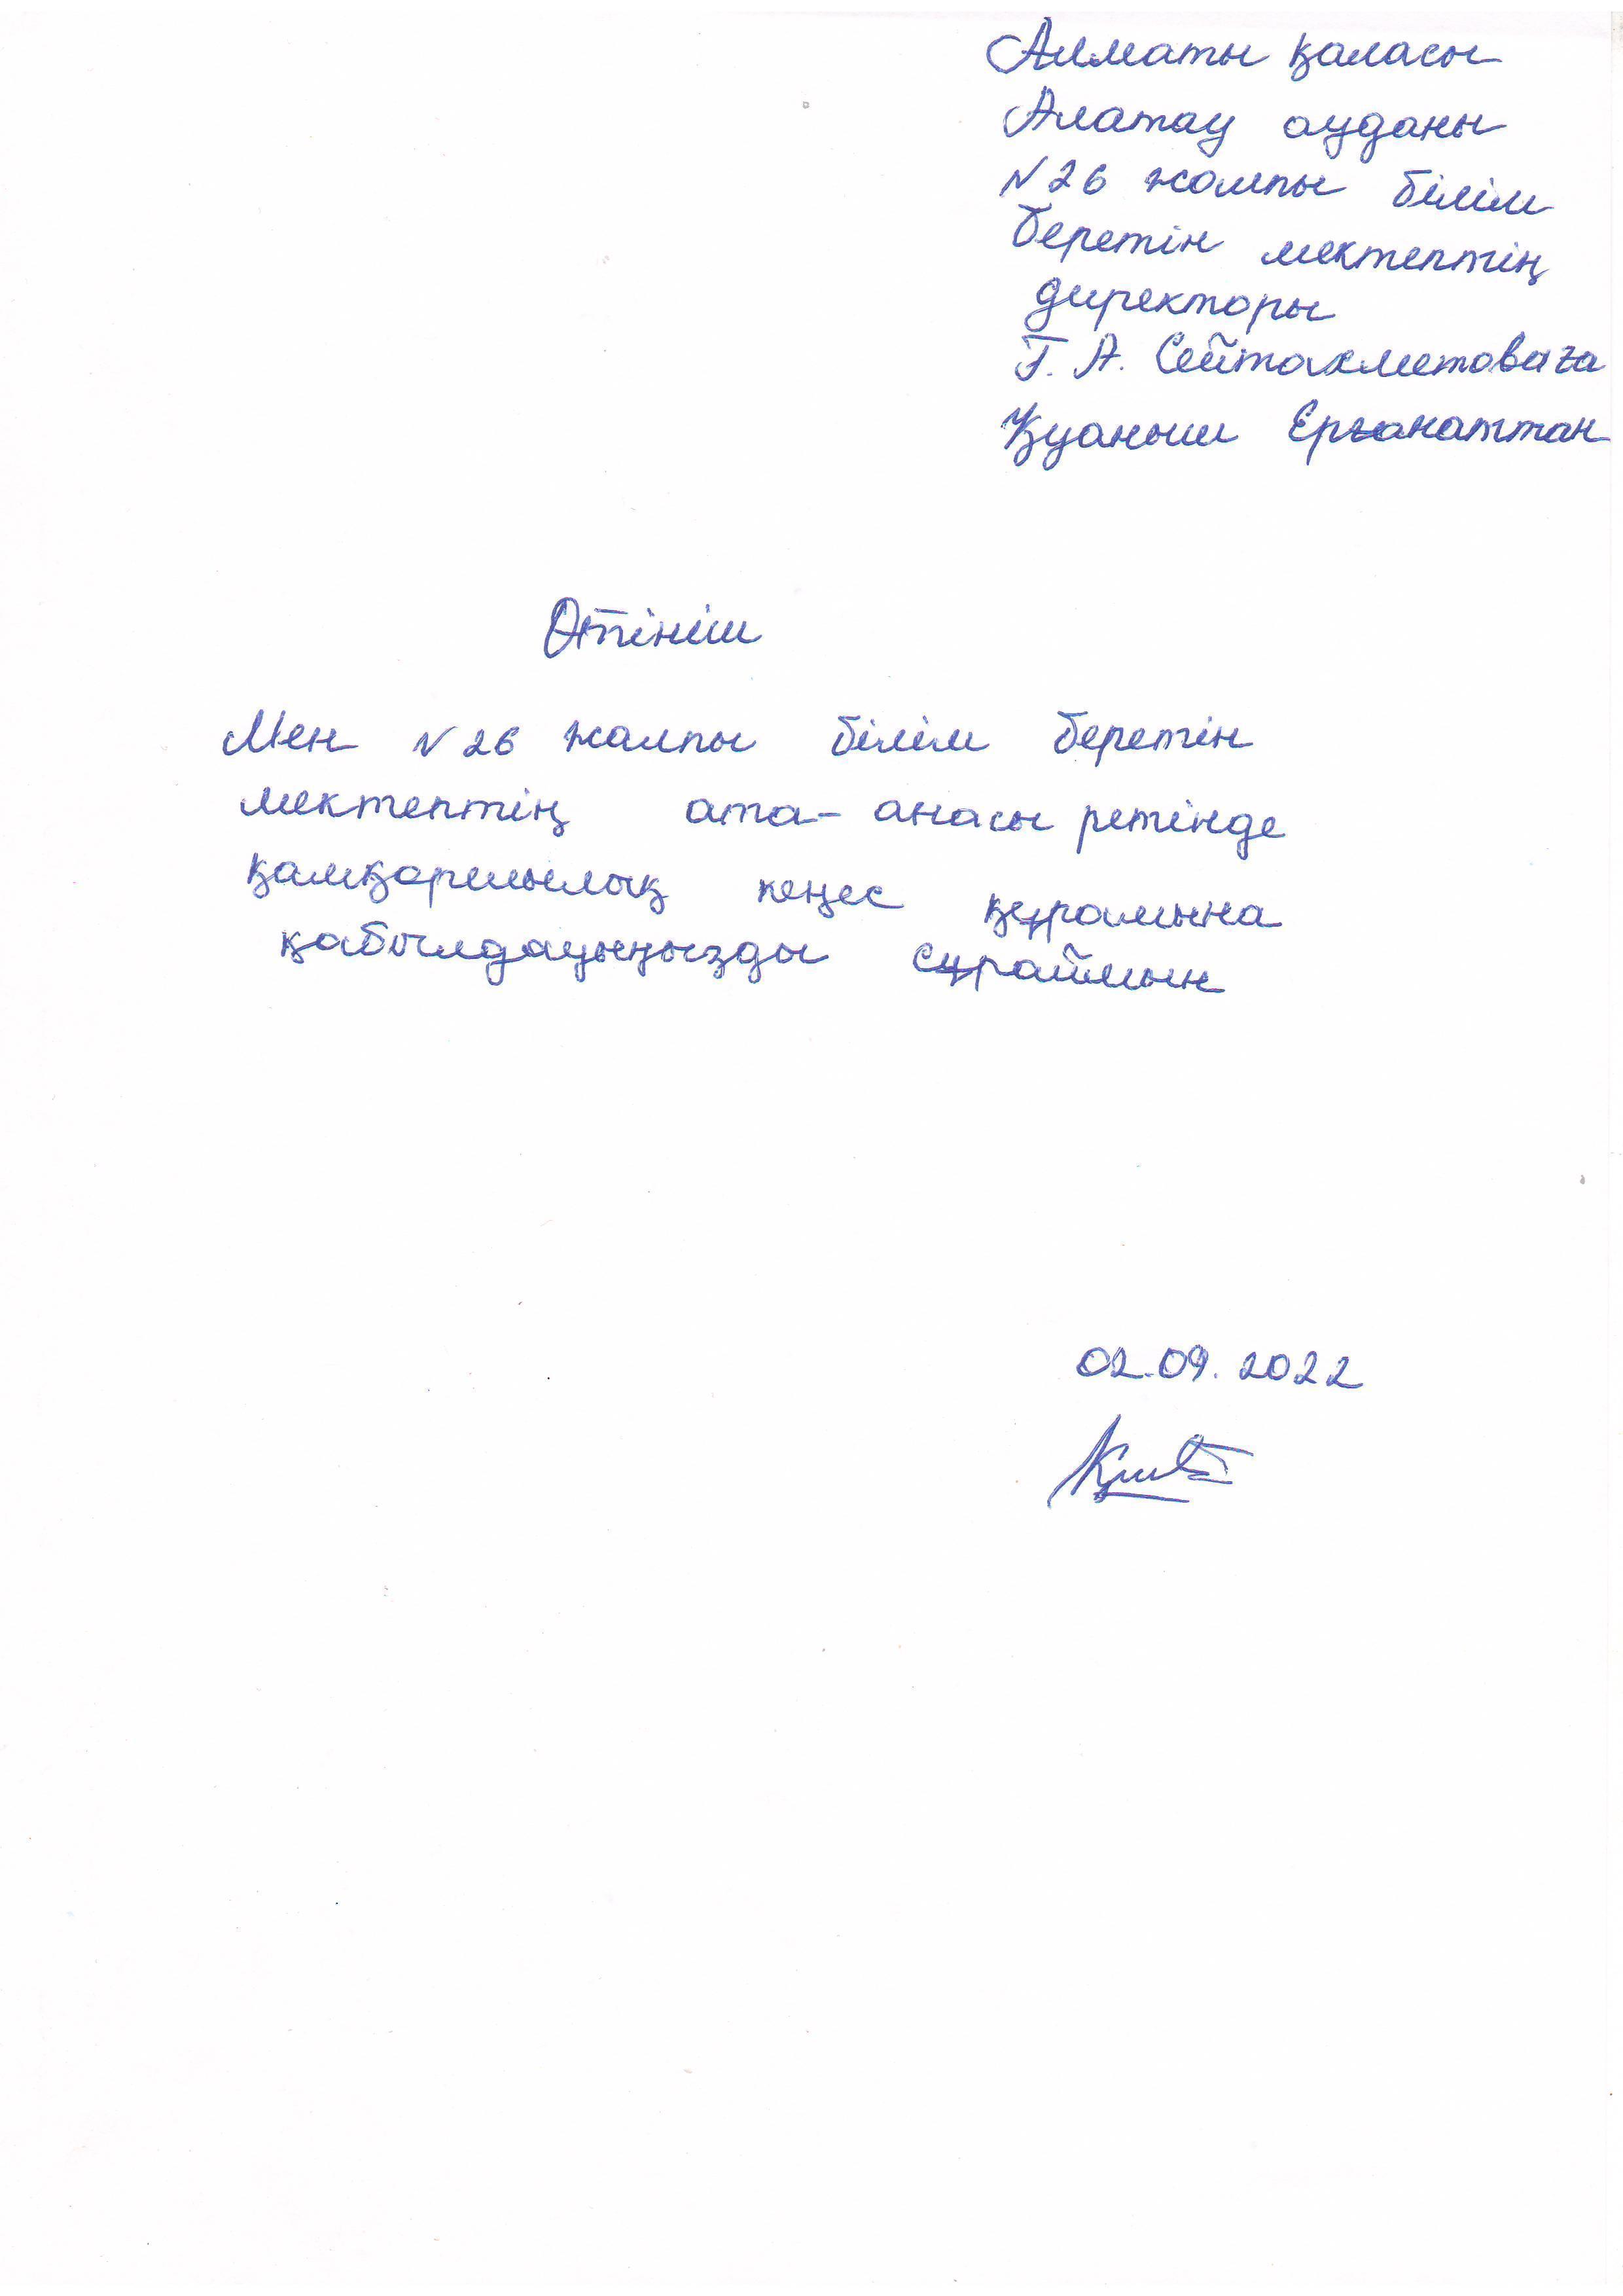 Алматы қаласы
Алатау ауданы
N 26 жалпы білім
беретін мектептің
директоры
Г. А. Сейтахметоваға
Қуаныш Ерғанаттан
Өтініш
Мен N 26 жалпы білім беретін
мектептің ата-анасы ретінде
қамқоршылық кеңес құрамына
қабылдауыңызды сұраймын
02.09.2022